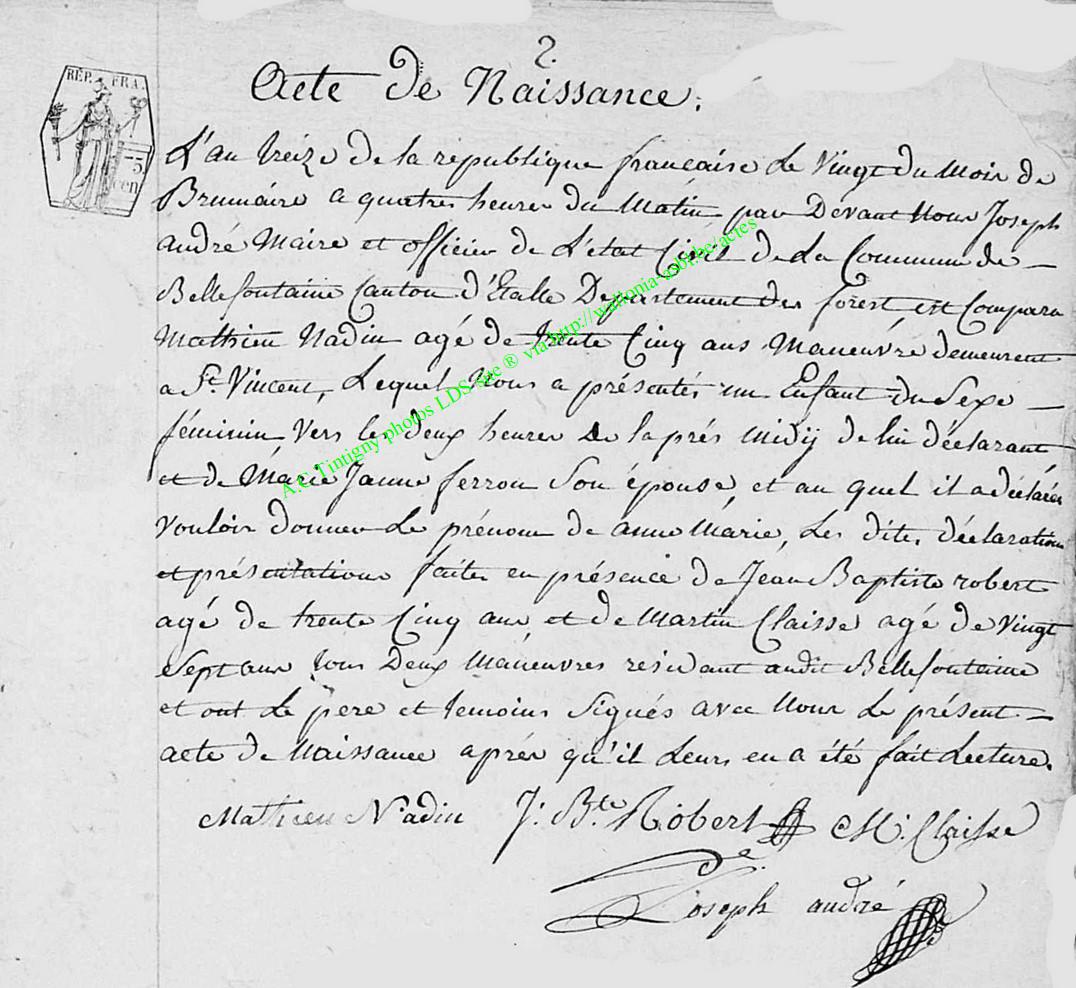 2.
Acte de Naissance.
RÉP. FRA.
75
cen
L'an treize de la république française le Vingt du Mois de
Brumaire a quatres heures du Matin par Devant Nous Joseph
andré Maire et officier de L'etat Civil de La Commune de —
Bellefontaine Canton d'Etalle Departement des forest est Comparu
Mathieu Nadin agé de trente Cinq ans Maneuvré demeurent
a St. Vincent, Lequel Nous a présentés un Enfant du Sexe —
féminin Vers les deux heures De la prés midij de lui déclarant
et de Márie Janne ferron Son épouse, et au quel il a déclarés
Vouloir donner Le prénom de anne Márie, Les dites déclarations
et présentations faites en présence de Jean Baptiste robert
agé de trente Cinq ans et de Martin Claisse agé de Vingt
Sept ans tous Deux Maneuvres residant audit Bellefontaine
et ont Le pere et temoins Signés avec Nous Le présent —
acte de Naissance aprés qu'il Leurs en a été fait Lecture.
Mathieu Nadin J: Bte Robert M: Claisse
Joseph andré
A.C. Tintigny photos LDS site ® via http://wallonia-asbl.be/actes